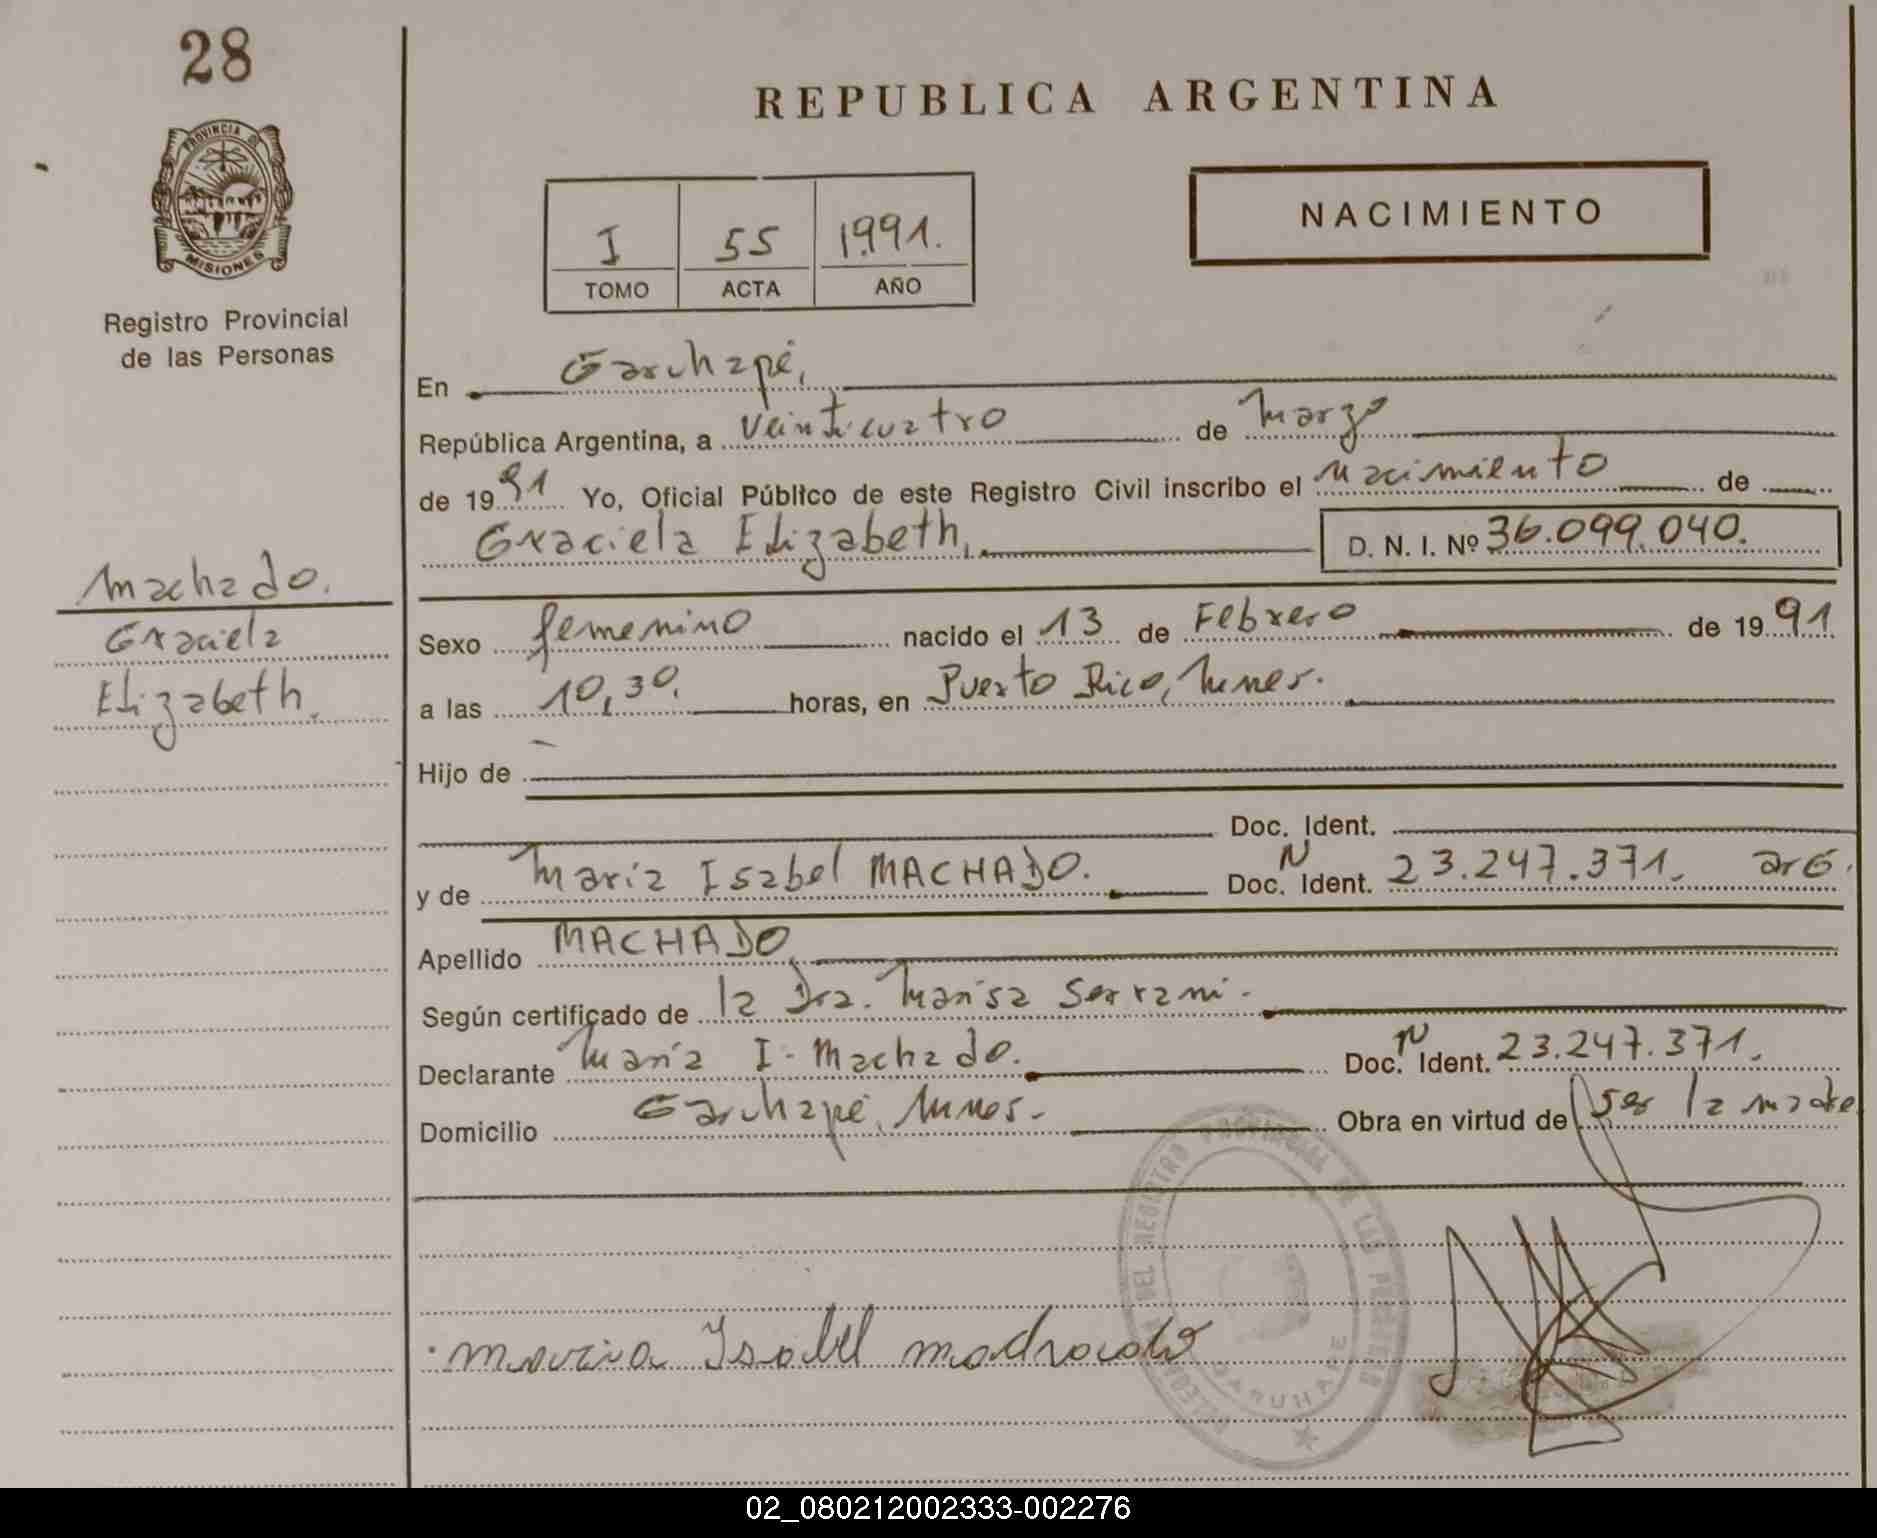 28
PROVINCIA DE
MISIONES
Registro Provincial
de las Personas
REPUBLICA ARGENTINA
I 55 1991.
TOMO ACTA AÑO
NACIMIENTO
En Garuhapé,
República Argentina, a veinticuatro de Marzo
de 1991 Yo, Oficial Público de este Registro Civil inscribo el nacimiento de
Graciela Elizabeth, D. N. I. Nº 36.099.040.
Machado.
Graciela
Elizabeth,
Sexo femenino nacido el 13 de Febrero de 1991
a las 10,30. horas, en Puerto Rico, Mnes.
Hijo de
Doc. Ident.
y de Maria Isabel MACHADO. Doc. N Ident. 23.247.371. arG.
Apellido MACHADO
Según certificado de la Dra. Marisa Serrani.
Declarante María I. Machado. Doc. N Ident. 23.247.371.
Domicilio Garuhapé, Mnes. Obra en virtud de ser la madre
DEL REGISTRO PROVINCIAL DE LAS PERSONAS
GARUHAPE
maria Isabel machado
02_080212002333-002276